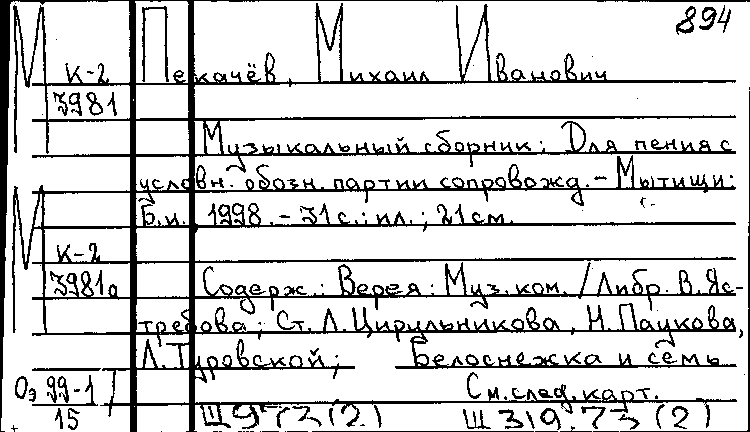 894
М К-2 Пекачёв, Михаил Иванович
3981
Музыкальный сборник: Для пения с
условн. обозн. партии сопровожд. - Мытищи:
Б.и. 1998. - 31 с.: ил.; 21 см.
М К-2
3981а Содерж.: Верея: Муз. ком. / Либр. В. Яс-
требова; Ст. Л. Цирульникова, Н. Паукова,
Л. Туровской; Белоснежка и семь
Оэ 99-1/ См. след. карт.
15 Щ973(2) Щ319.73(2)